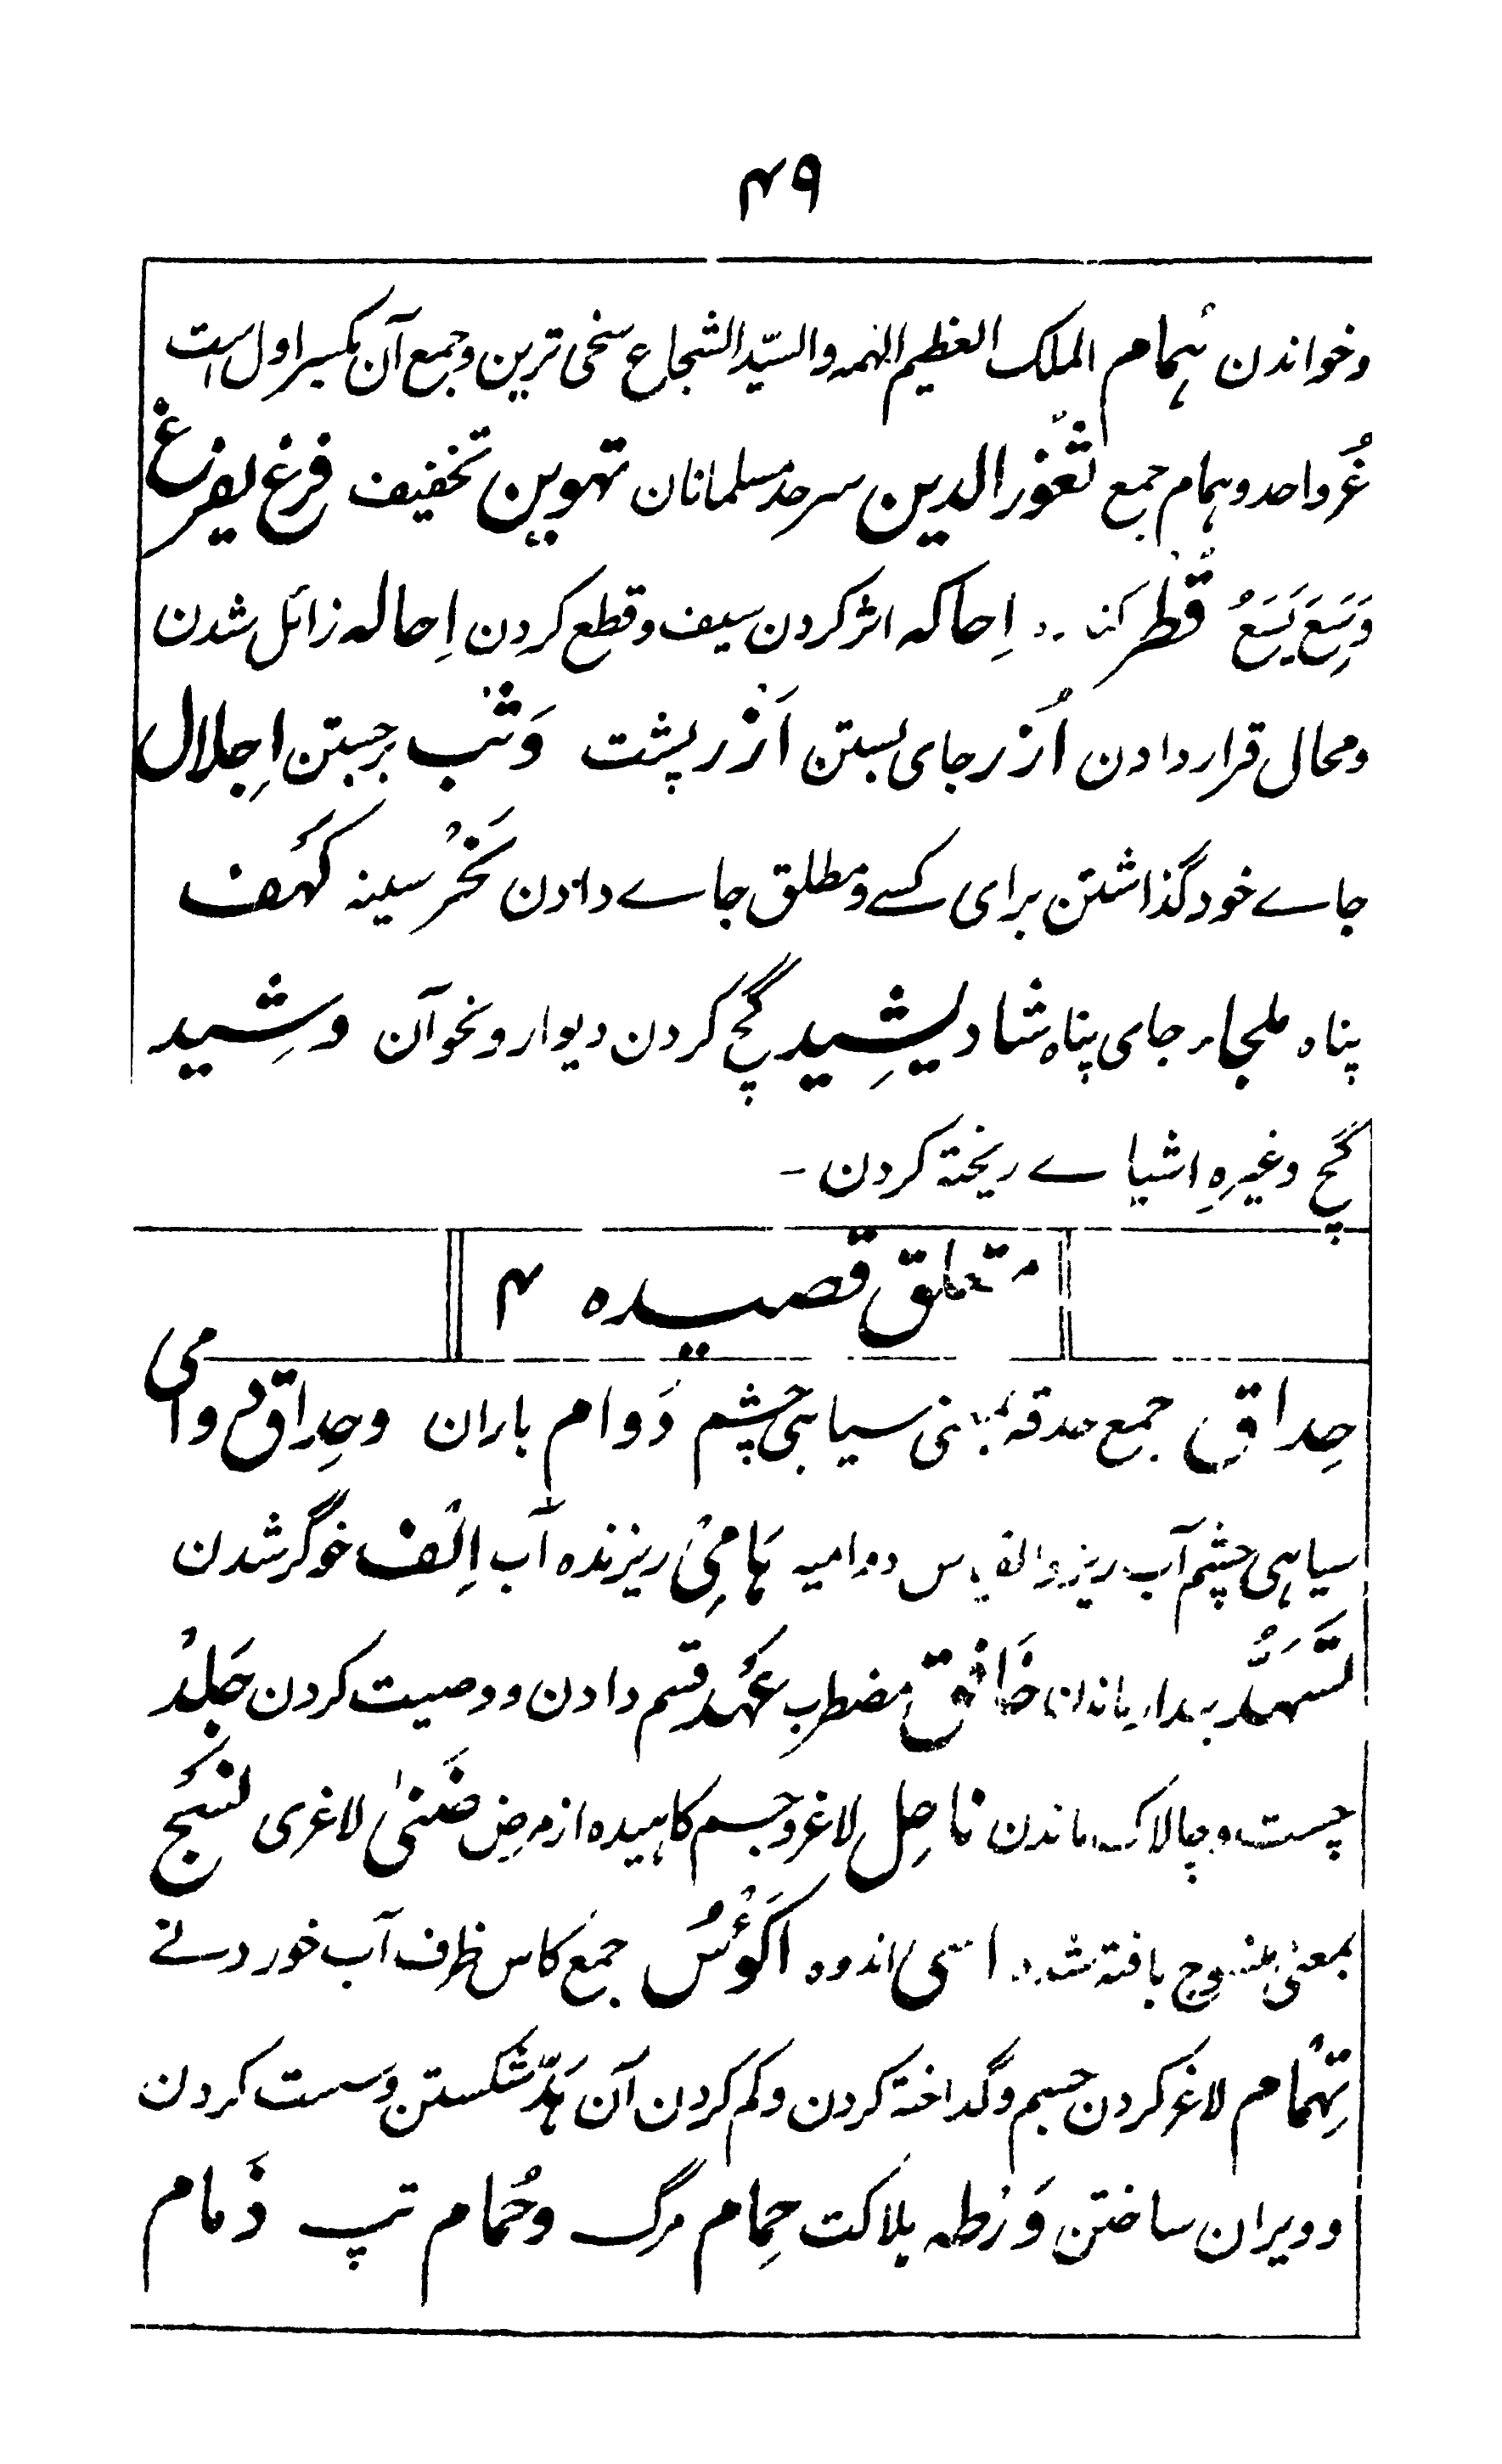 ۴۹
وخواندن ہُمام الملک العظیم الہمہ والسیّد الشجاع سخی ترین وجمع آن بکسر اول است
غُر واحد وہمام جمع ثغور الدین سرحد مسلمانان تہوین تخفیف فرغ یفرغ
وَسِعَ یَسَعُ قُطْر کنارہ اِحاکہ اثر کردن سیف وقطع کردن اِحالہ زائل شدن
ومحال قرار دادن اُزر جای بستن اَزْر پشت وَثْب برجستن اِجلال
جاے خود گذاشتن برای کسے ومطلق جاے دادن نَحْر سینہ کَہف
پناہ ملجاء جای پناہ شاد یشِید گچ کردن دیوار ونحو آن وشِید
گچ وغیرہِ اشیاے ریختہ کردن ۔
متعلق قصیدہ ۴
حِداق جمع حدقہ بمعنی سیاہی چشم دَوام باران وحِداق دوامی
سیاہی چشم آب ریز دوامیہ ہَامِیْ ریزندہ آب اِلْف خوگر شدن
تَسَہُّد بیدار ماندن خَافق مضطرب عَہْد قسم دادن ووصیت کردن جَلْد
چست وچالاک ماندن ناحِل لاغر وجسم کاہیدہ از مرض ضَنیٰ لاغری نَسْج
بمعنی منسوج بافتہ شدہ اسیٰ اندوہ اَکْؤُس جمع کاس ظرف آب خوردنے
تِہْمام لاغر کردن جسم وگداختہ کردن وکم کردن آن ہَدّ شکستن وسست کردن
وویران ساختن وَرْطہ ہلاکت حِمام مرگ وحُمام تپ ذَمام